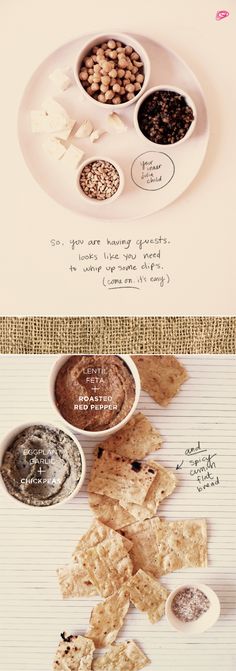 your inner
julia
child
So, you are having guests.
looks like you need
to whip up some dips.
(come on. it's easy.)
LENTIL
FETA
+
ROASTED
RED PEPPER
EGGPLANT
GARLIC
+
CHICKPEAS
and
spicy
cumin
flat
bread